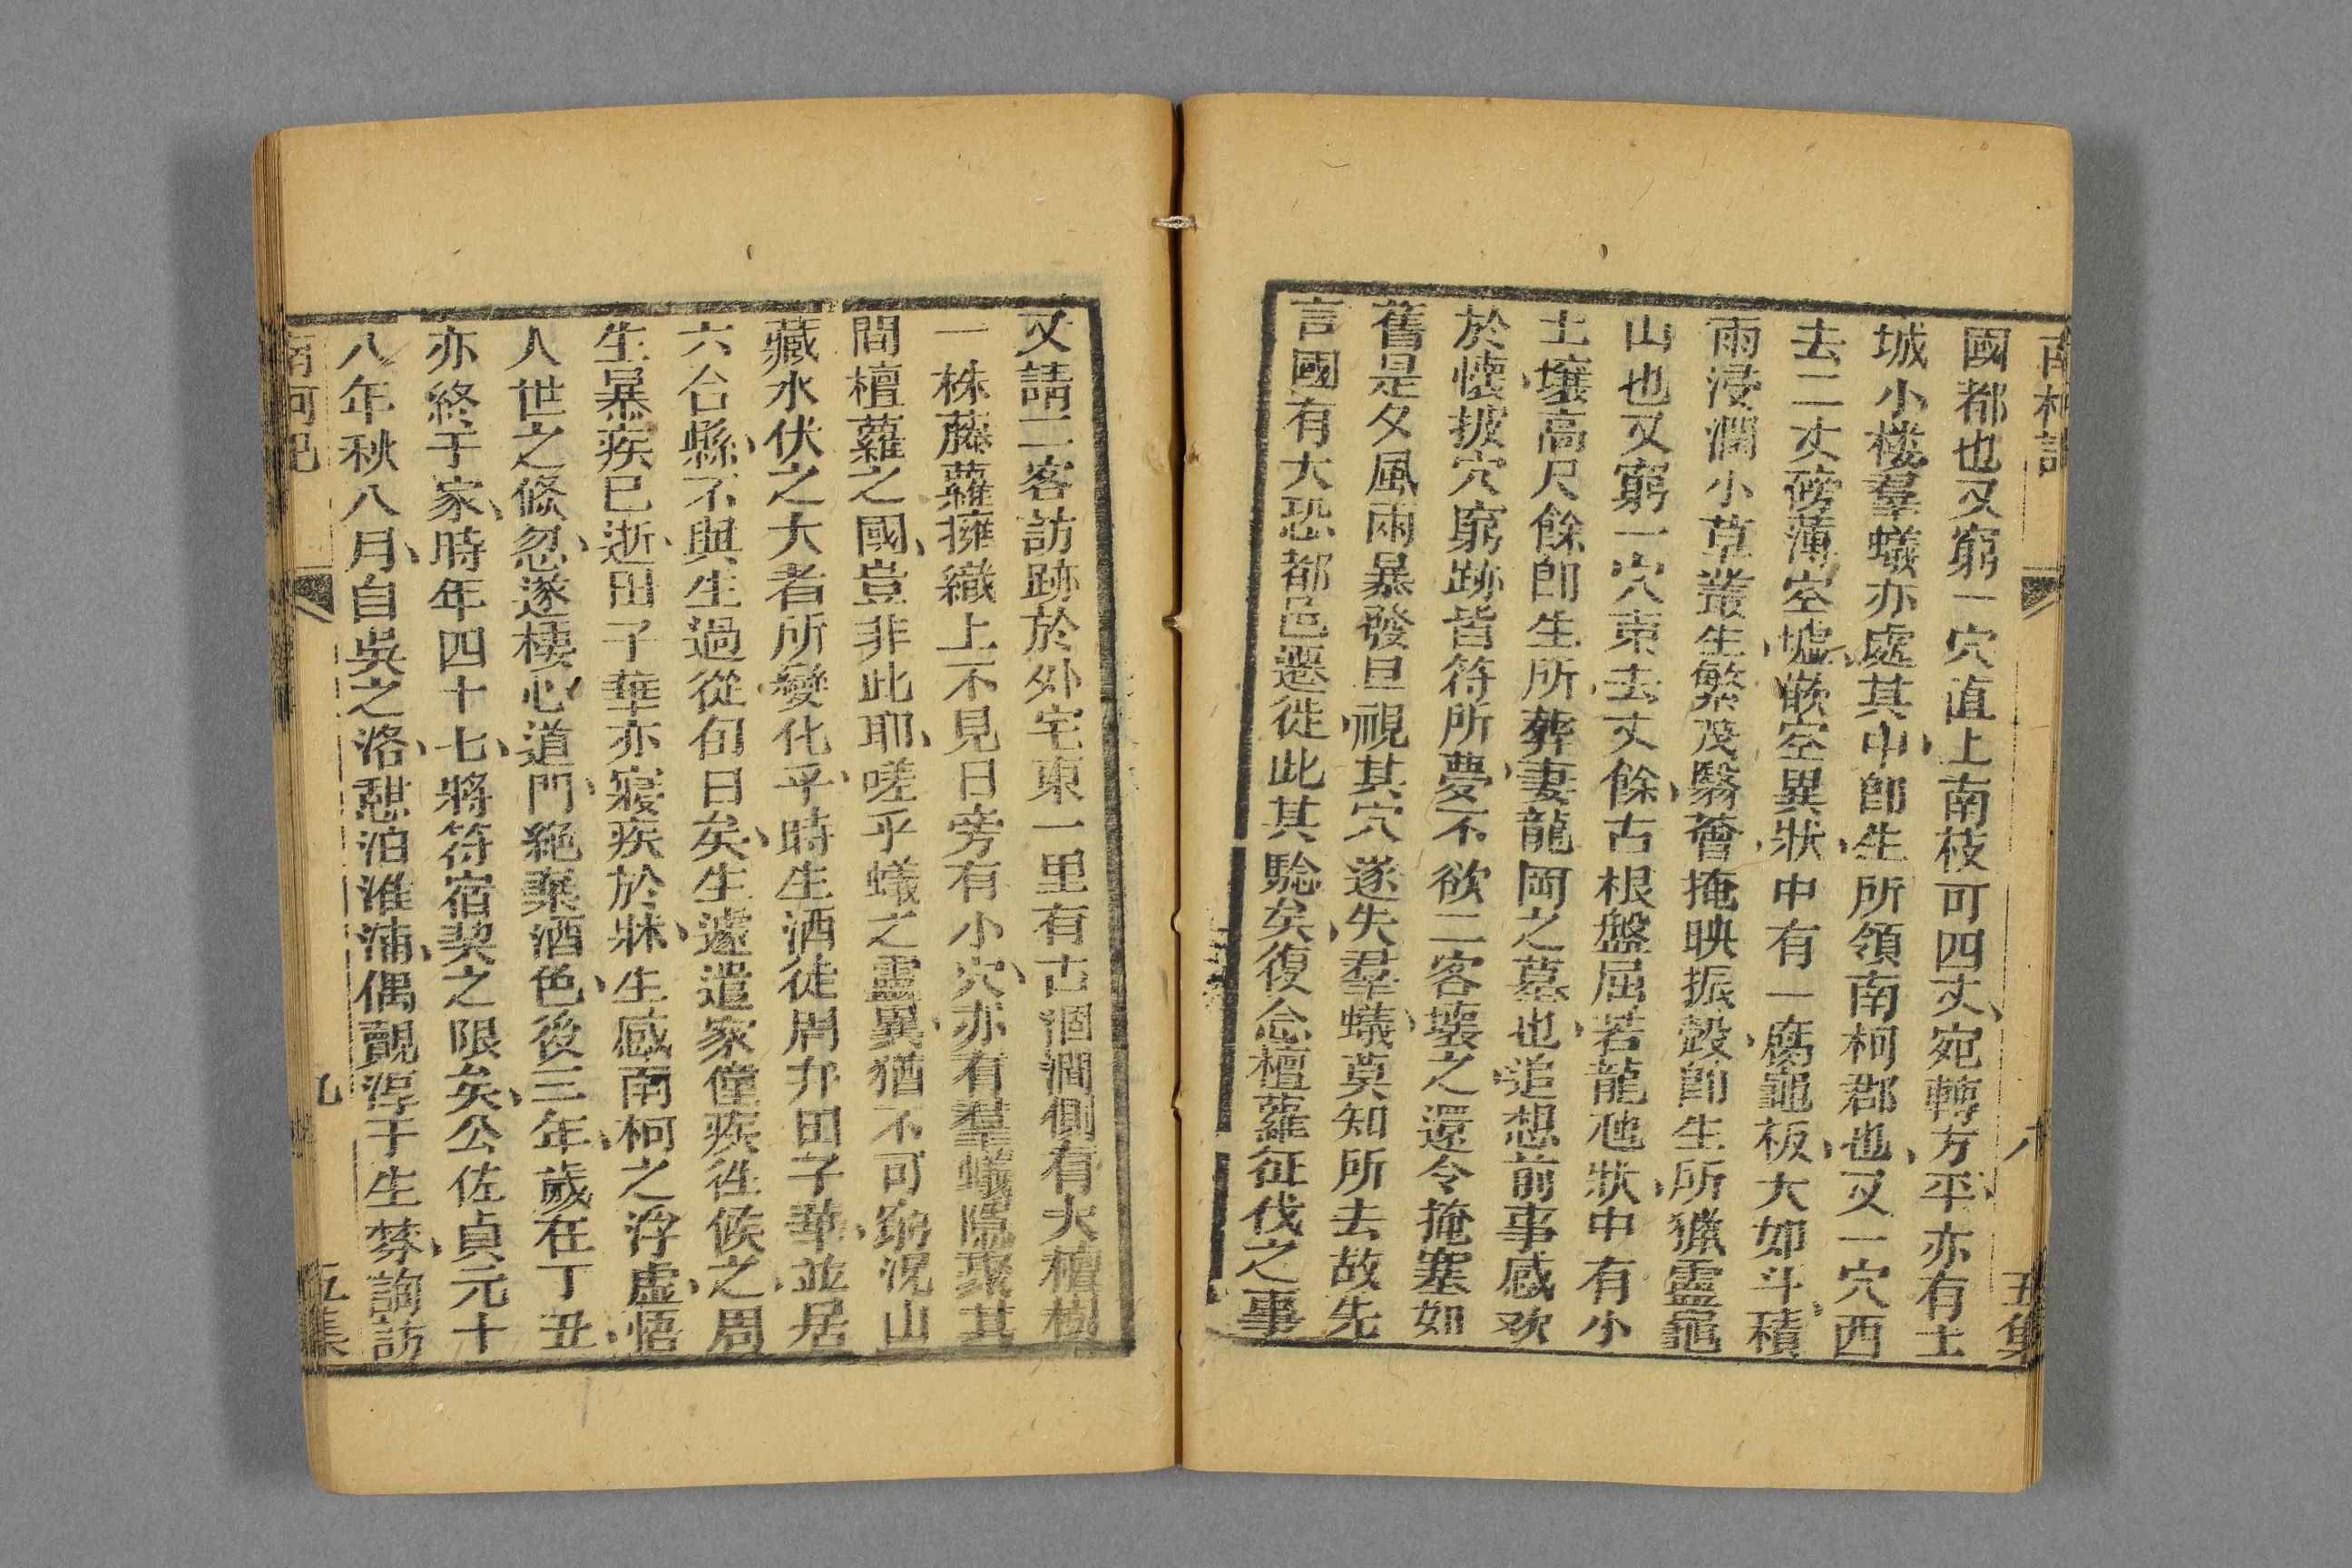 南柯記 八 五集
國都也又窮一穴直上南枝可四丈宛轉方平亦有土
城小樓羣蟻亦處其中卽生所領南柯郡也又一穴西
去二丈磅薄空墟嵌空異狀中有一腐龜板大如斗積
雨浸潤小草叢生繁茂翳薈掩映振殼卽生所獵靈龜
山也又窮一穴東去丈餘古根盤屈若龍虺狀中有小
土壤高尺餘卽生所葬妻龍岡之墓也追想前事感歎
於懷披穴窮跡皆符所夢不欲二客壞之還令掩塞如
舊是夕風雨暴發旦視其穴遂失羣蟻莫知所去故先
言國有大恐都邑遷徙此其驗矣復念檀蘿征伐之事
又請二客訪跡於外宅東一里有古涸澗側有大檀樹
一株藤蘿擁織上不見日旁有小穴亦有羣蟻隱聚其
間檀蘿之國豈非此耶嗟乎蟻之靈異猶不可窮況山
藏水伏之大者所變化乎時生酒徒周弁田子華並居
六合縣不與生過從旬日矣生遽遣家僮疾徃候之周
生暴疾已逝田子華亦寢疾於牀生感南柯之浮虛悟
人世之倐忽遂棲心道門絕棄酒色後三年歲在丁丑
亦終于家時年四十七將符宿契之限矣公佐貞元十
八年秋八月自吳之洛憇泊淮浦偶覿淳于生棼詢訪
南柯記 九 五集